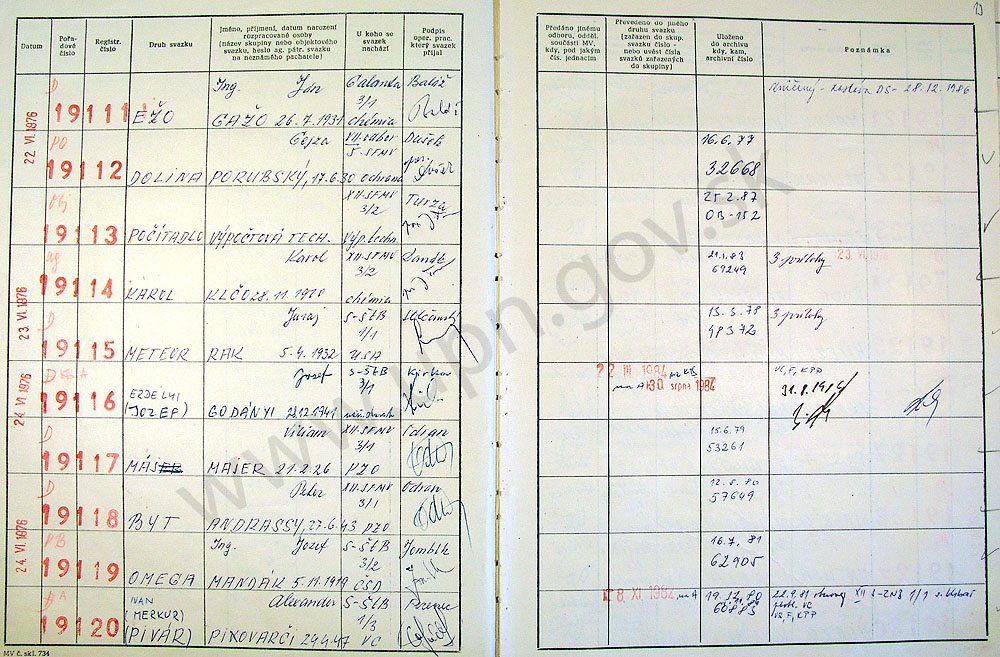 Datum
Pořadové číslo
Registr. číslo
Druh svazku
Jméno, příjmení, datum narození rozpracované osoby (název skupiny nebo objektového svazku, heslo ag. pátr. svazku na neznámého pachatele)
U koho se svazek nachází
Podpis oper. prac. který svazek přijal
Předáno jinému odboru, oddělení, součásti MV, kdy, pod jakým čís. jednacím
Převedeno do jiného druhu svazku (zařazen do skup. svazku číslo - nebo uvést čísla svazků zařazených do skupiny)
Uloženo do archivu kdy, kam, archivní číslo
Poznámka
22 VI. 1976
D
19111
EŽO
Ing. Ján
GAŽO 26.7.1931
3/1
chémia
Baláž
28.12.1986
PO
19112
DOLINA
Gejza
PORUBSKÝ, 17.6.30
VII. odbor
S-SFMV
ochrana
Dušek
16.6.77
32668
Obj
19113
POČÍTADLO
VÝPOČTOVÁ TECH.
XII-SFMV
3/2
výp. techn.
Turza
25.2.87
OB-152
ag
19114
KAROL
Karol
KLČO 28.11.1920
XII-SFMV
3/2
chémia
21.1.83
67249
3 prílohy
23. VI. 1976
23. VI. 1976
D
19115
METEOR
Juraj
RAK 5.4.1932
S-ŠtB
1/1
USA
13.3.78
48372
3 prílohy
24. VI. 1976
D
19116
ERDELYI
(JOZEF)
Jozef
GODÁNYI 28.12.1941
S-ŠtB
3/1
22 III. 1984
30. srpna 1984
VC, F, KPP
D
19117
MÁS
Viliam
MAJER 21.2.26
XII-SFMV
3/1
PZO
Odran
15.6.79
53261
D
19118
BYT
Peter
ANDRASSY, 27.6.43
XII-SFMV
3/1
PZO
Odran
12.5.80
57649
24. VI. 1976
PB
19119
OMEGA
Ing. Jozef
MANDÁK 5.11.1919
S-ŠtB
3/2
ČSD
16.7.81
62905
19120
IVAN
(MERKUR)
(PIVÁR)
Alexander
PIVOVARČI 24.4.47
S-ŠtB
1/3
VC
8. XI. 1982
19.12.80
60885
22.9.81
1/1
VC, F, KPP
MV č. skl. 734
www.upn.gov.sk